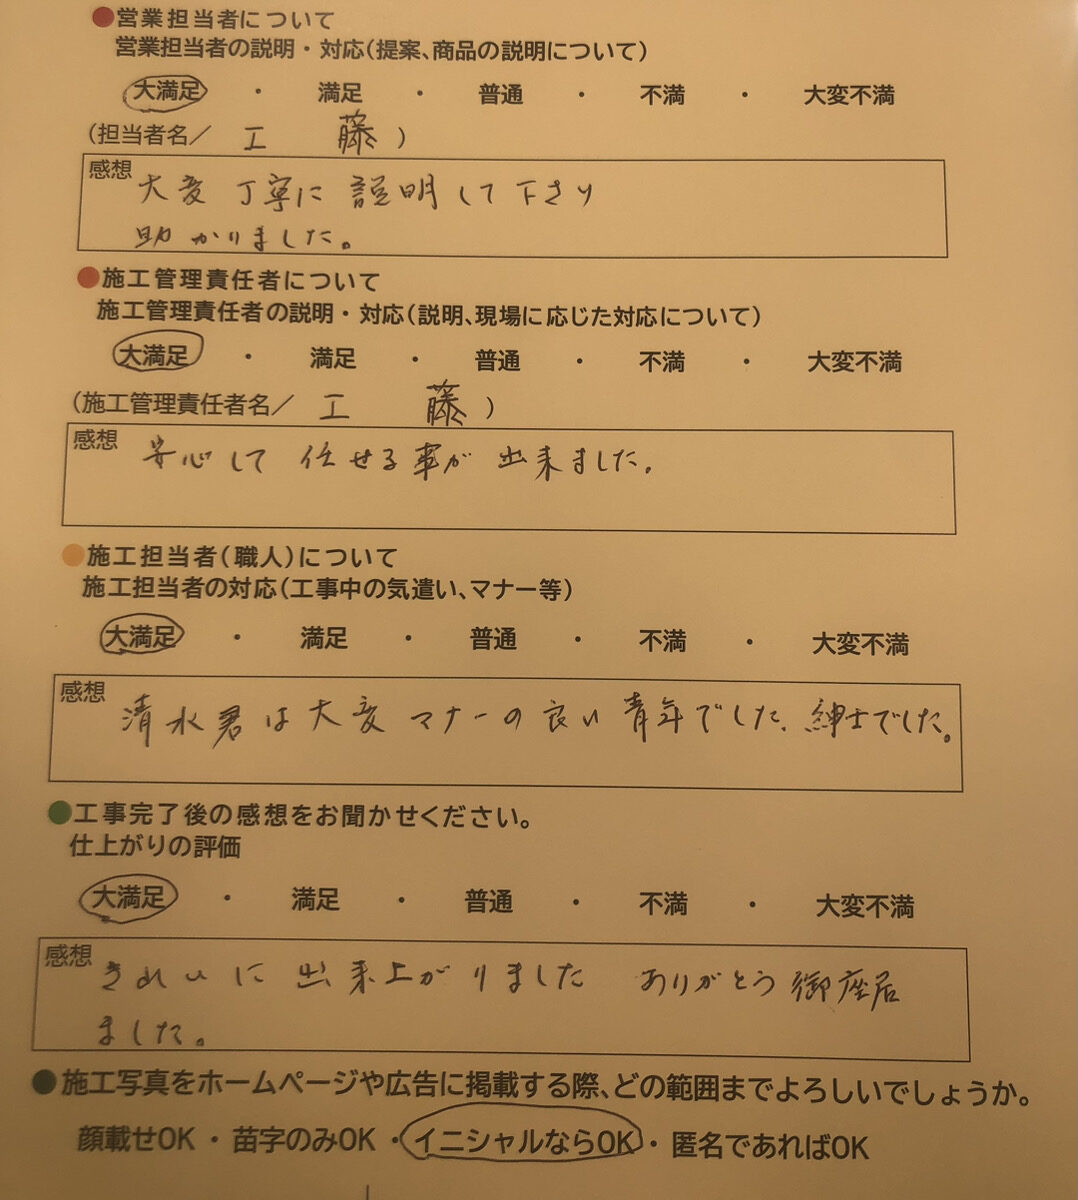 ●営業担当者について
営業担当者の説明・対応(提案、商品の説明について)
大満足 ・ 満足 ・ 普通 ・ 不満 ・ 大変不満
(担当者名／ 工 藤 )
感想
大変 丁寧に 説明して下さり
助かりました。
●施工管理責任者について
施工管理責任者の説明・対応(説明、現場に応じた対応について)
大満足 ・ 満足 ・ 普通 ・ 不満 ・ 大変不満
(施工管理責任者名／ 工 藤 )
感想
安心して 任せる事が 出来ました。
●施工担当者(職人)について
施工担当者の対応(工事中の気遣い、マナー等)
大満足 ・ 満足 ・ 普通 ・ 不満 ・ 大変不満
感想
清水君は大変 マナーの良い 青年でした、紳士でした。
●工事完了後の感想をお聞かせください。
仕上がりの評価
大満足 ・ 満足 ・ 普通 ・ 不満 ・ 大変不満
感想
きれいに 出来上がりました ありがとう御座居
ました。
●施工写真をホームページや広告に掲載する際、どの範囲までよろしいでしょうか。
顔載せOK ・ 苗字のみOK ・ イニシャルならOK ・ 匿名であればOK